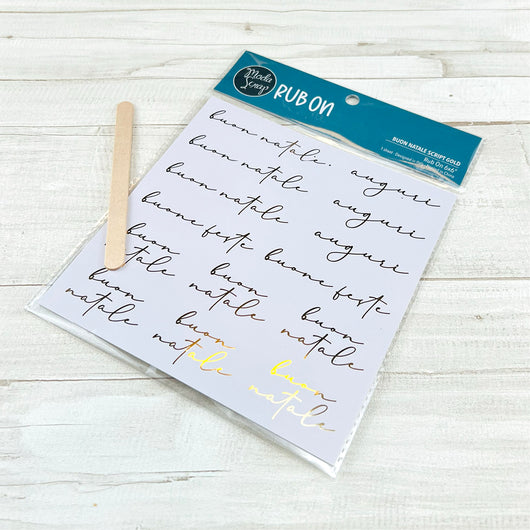 Moda
Scrap
RUB ON
BUON NATALE SCRIPT GOLD
Rub On 6x6"
buon natale. auguri
buon natale auguri
buon natale auguri
buone feste buone feste
buon buon buon
natale natale natale
buon buon buon
natale natale natale